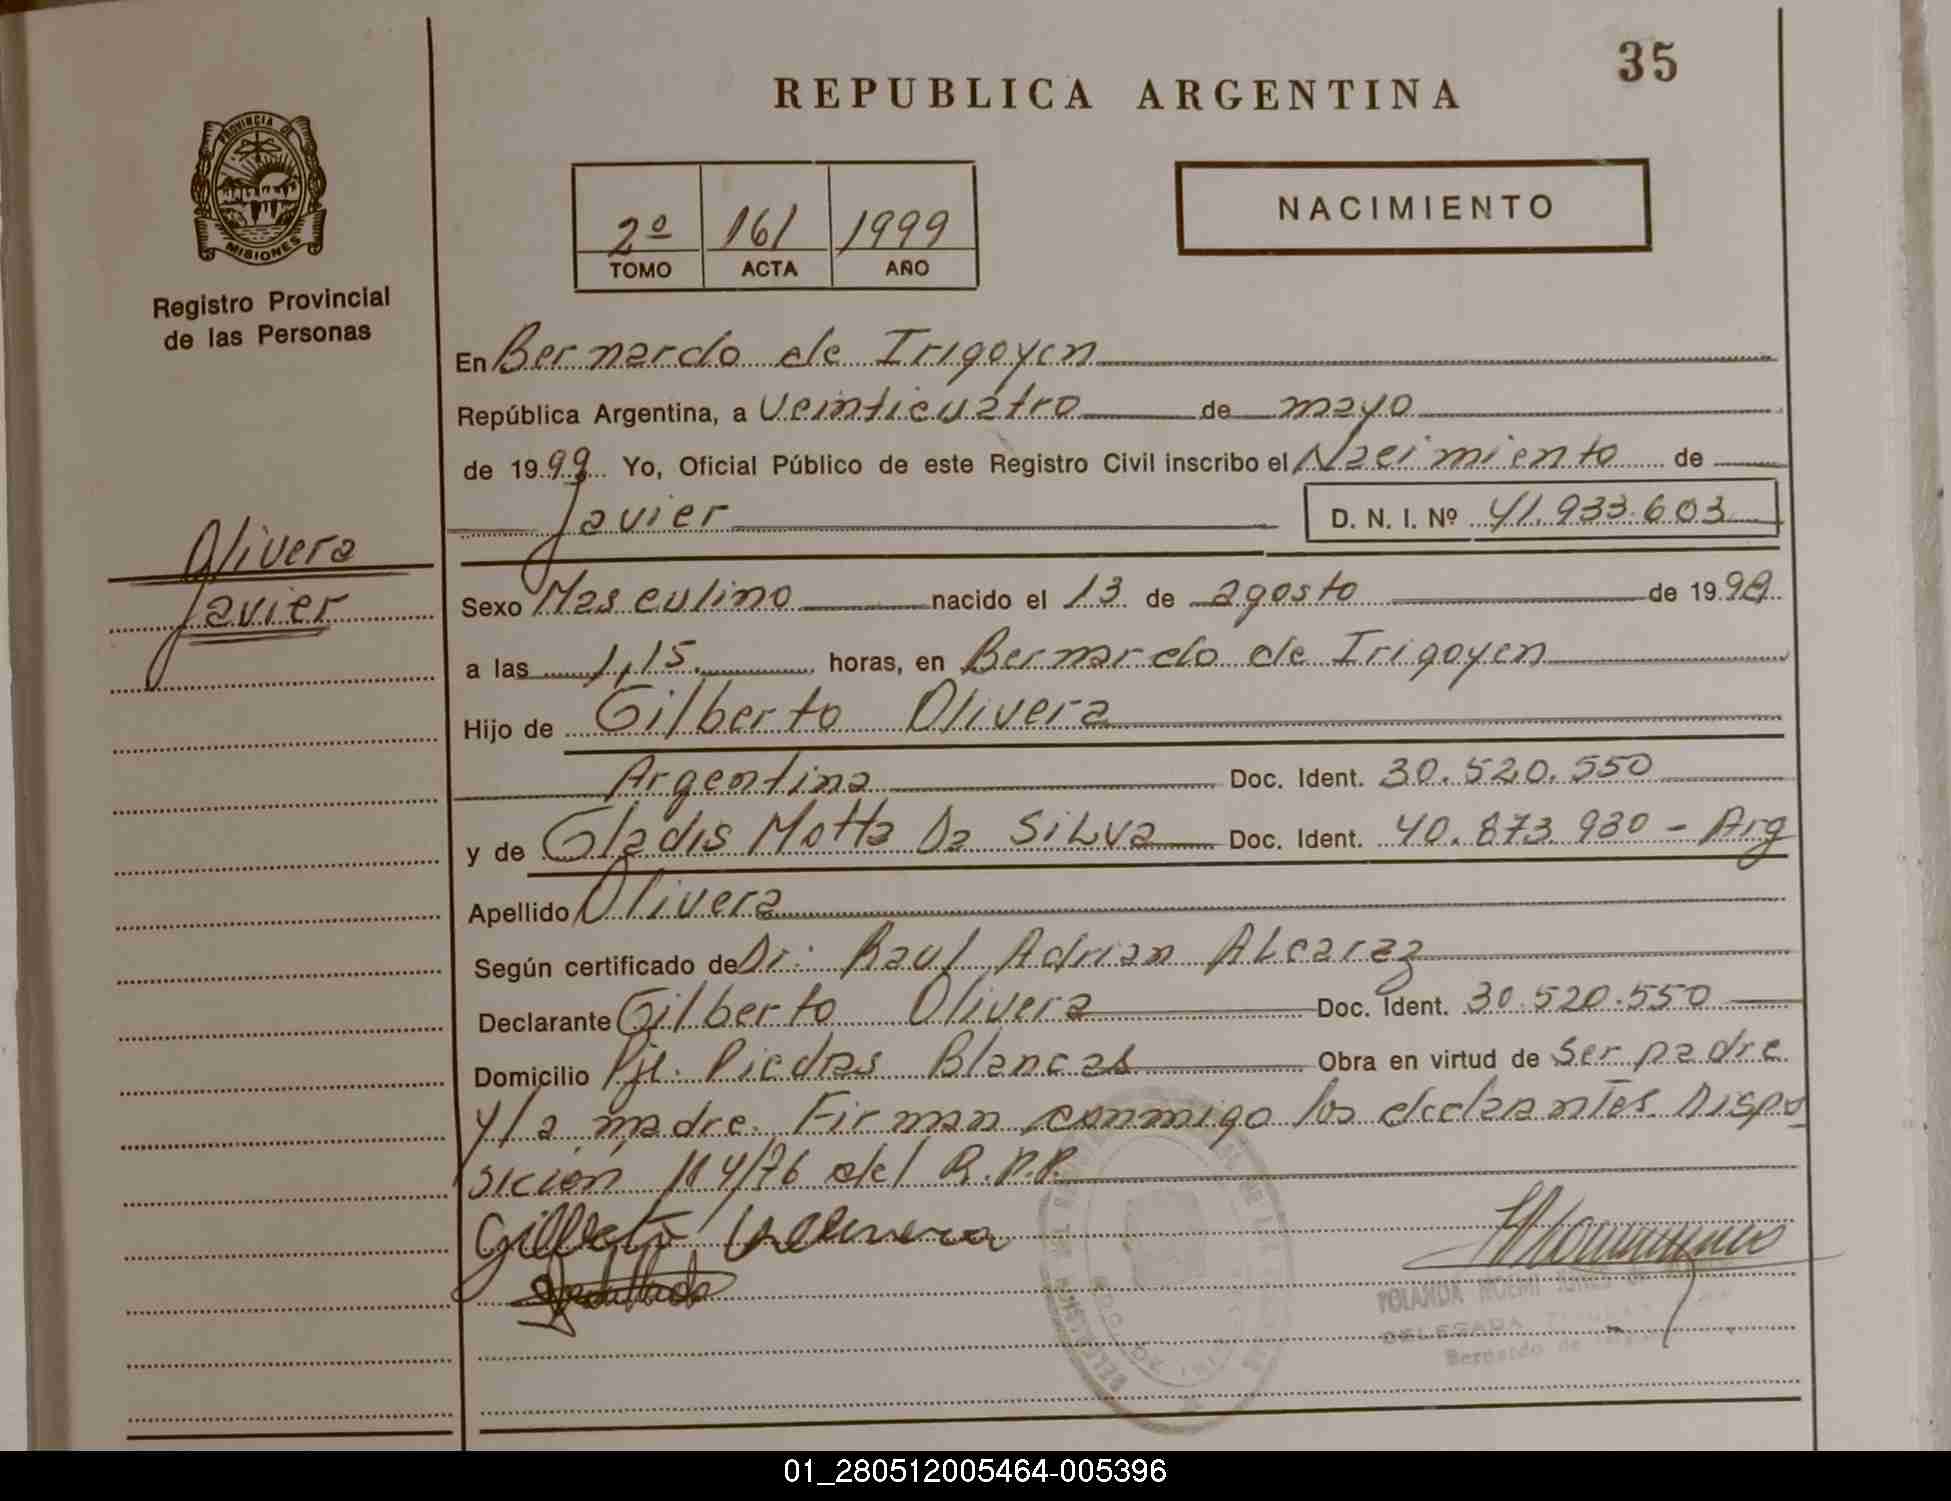 35
REPUBLICA ARGENTINA
PROVINCIA DE
MISIONES
Registro Provincial
de las Personas
2º 161 1999
TOMO ACTA AÑO
NACIMIENTO
En Bernardo de Irigoyen
República Argentina, a Veinticuatro de mayo
de 1999 Yo, Oficial Público de este Registro Civil inscribo el Nacimiento de
Javier D. N. I. Nº 41.933.603
Olivera
Javier
Sexo Masculino nacido el 13 de agosto de 199
a las 1,15. horas, en Bernardo de Irigoyen
Hijo de Gilberto Olivera
Argentina Doc. Ident. 30.520.550
y de Gladis Motta Da SiLva Doc. Ident. 40.873.930 - Arg
Apellido Olivera
Según certificado de Dr: Raul Adrian ALcaraz
Declarante Gilberto Olivera Doc. Ident. 30.520.550
Domicilio Pje. Piedras Blancas Obra en virtud de Ser padre
y la madre. Firman conmigo los declarantes Dispo
sición 114/76 del R.P.P.
YOLANDA NOEMI
DELEGADA
Bernardo de
01_280512005464-005396